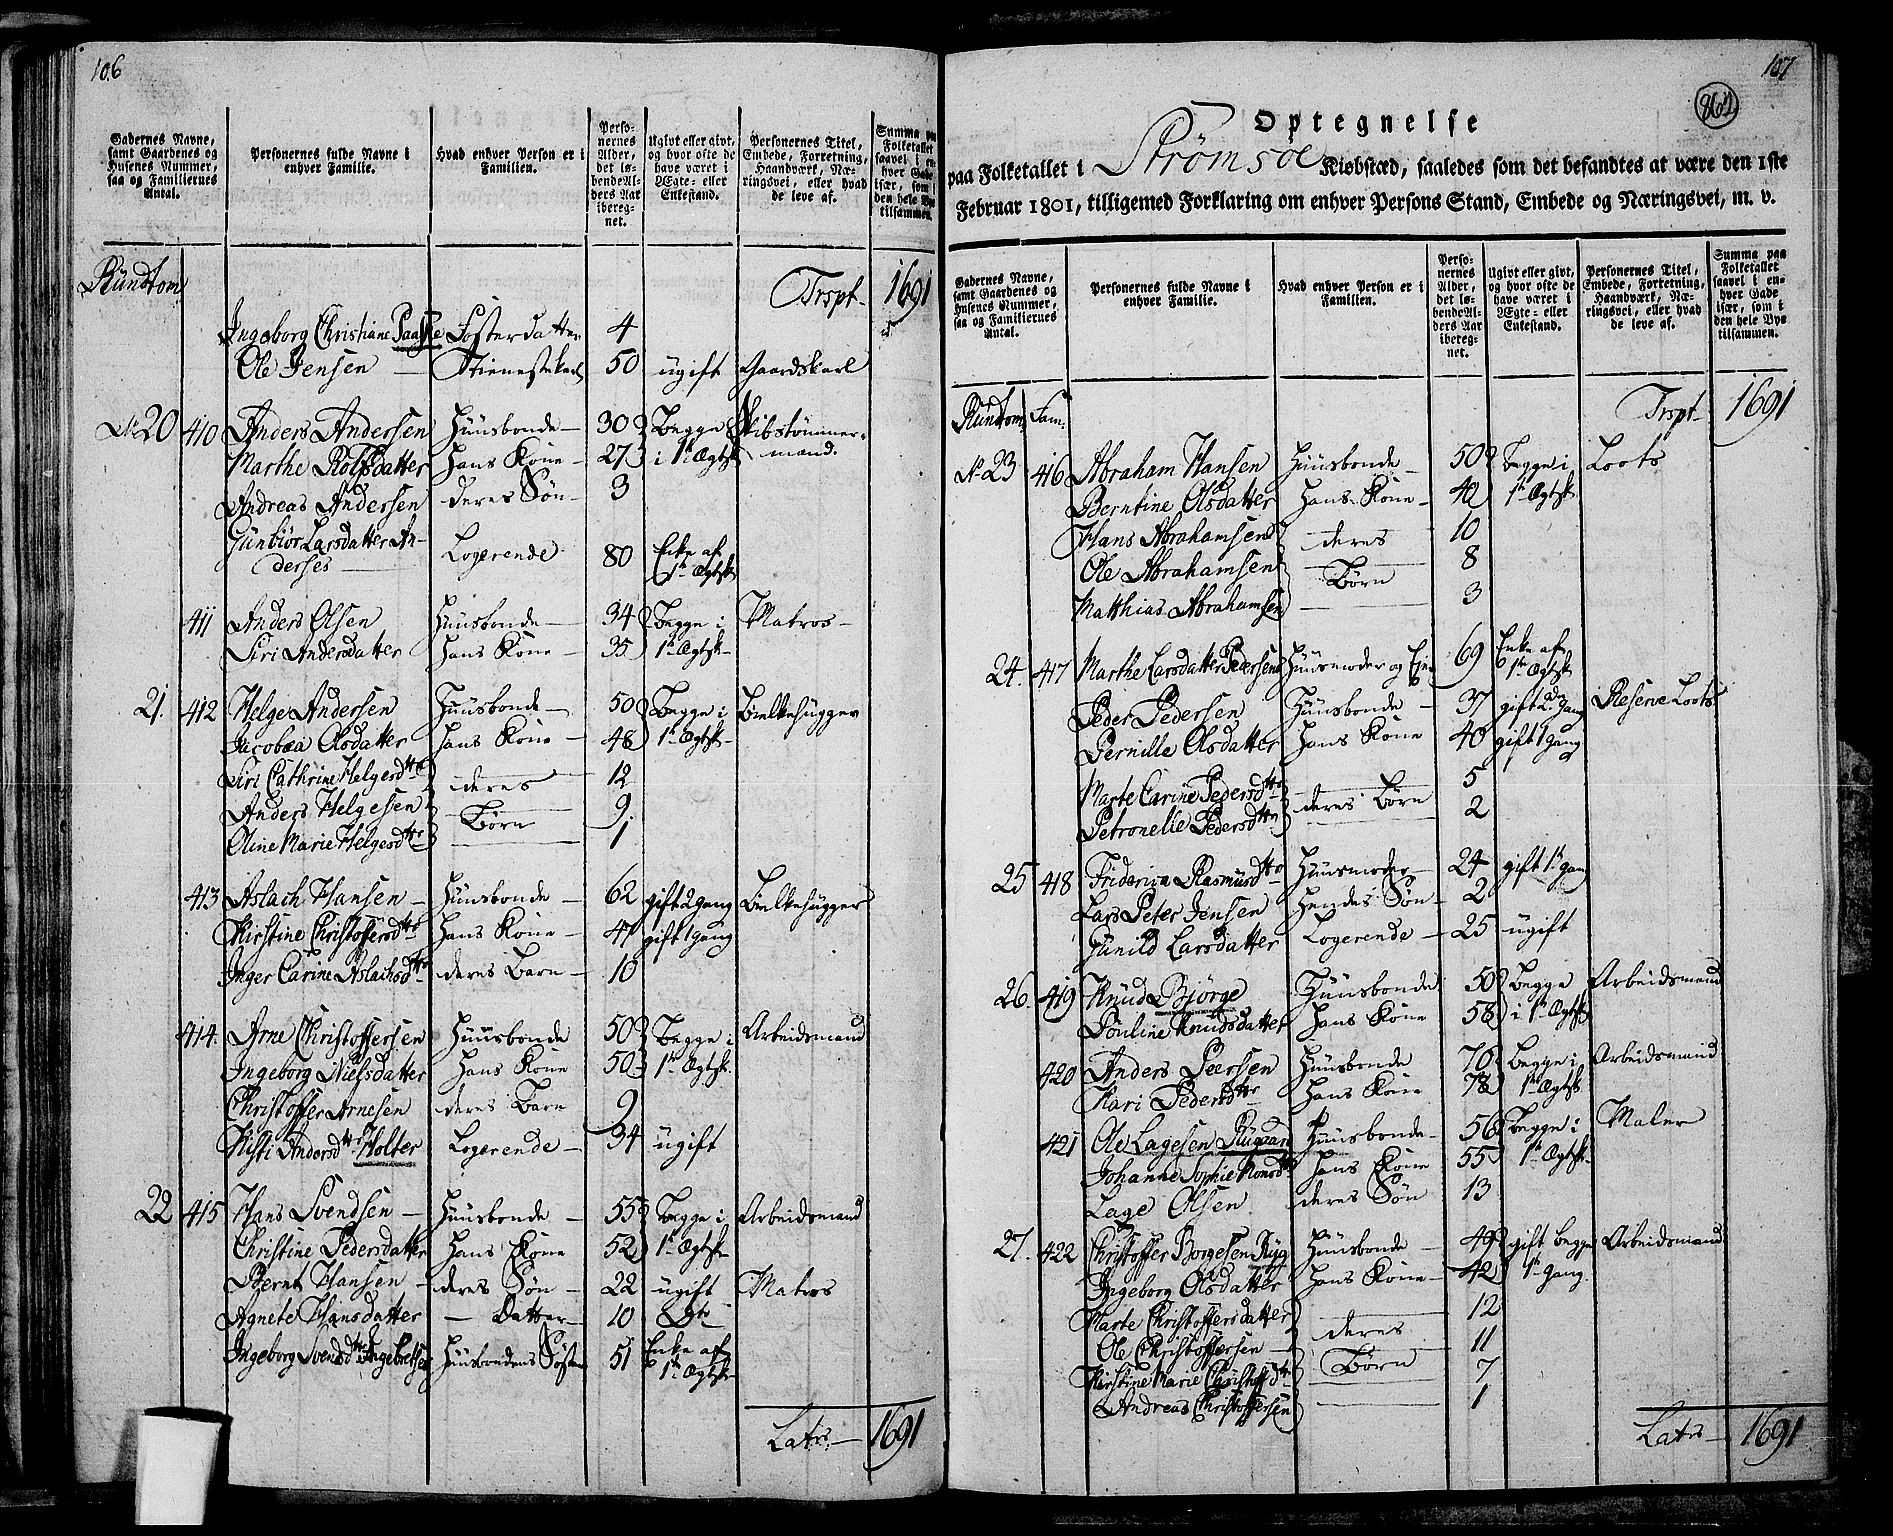 106
Gadernes Navne, samt Gaardenes og Husenes Nummer, saa og Familiernes Antal.
Personernes fulde Navne i enhver Familie.
Hvad enhver Person er i Familien.
Personernes Alder, det løbende Alders Aar iberegnet.
Ugivt eller givt, og hvor ofte de have været i Ægte- eller Enkestand.
Personernes Titel, Embede, Forretning, Haandværk, Næringsvei, eller hvad de leve af.
Summa paa Folketallet saavel i enhver Gade især, som i den hele Bye tilsammen.
Rundtom Trspt. 1691
Ingeborg Christiane Paaske Fosterdatter 4
Ole Jensen Tienestekarl 50 ugift Gaardskarl
No 20 410 Anders Andersen Huusbonde 30 Begge Skibstømmer-
Marthe Rolfsdatter hans Kone 27 i 1te Ægtsk mand.
Andreas Andersen deres Søn 3
Gunbiør Larsdatter An-
derses Logerende 80 Enke af 1te Ægtsk
411 Anders Olsen Huusbonde 34 Begge i Matros
Siri Andersdatter hans Kone 35 1te Ægtsk
21. 412 Helge Andersen Huusbonde 50 Begge i Bielkehugger
Jacobæa Olsdatter hans Kone 48 1te Ægtsk
Siri Cathrine Helgesdtr deres 12
Anders Helgesen Børn 9.
Oline Marie Helgesdtr 1
413 Aslach Hansen Huusbonde 62 gift 2 gang Bielkehugger
Kirstine Christoffersdtr hans Kone 47 gift 1 gang
Inger Carine Aslachsdtr deres Barn 10
414. Arne Christoffersen Huusbonde 50 Begge i Arbeidsmand
Ingeborg Nielsdatter hans Kone 50 1te Ægtsk.
Christoffer Arnesen deres Barn 9
Kisti Andersdtr Holter Logerende 34 ugift
22 415 Hans Svendsen Huusbonde 55 Begge i Arbeidsmand
Christine Pedersdatter hans Kone 52 1te Ægtsk
Bernt Hansen deres Søn 22 ugift Matros
Agnete Hansdatter Datter 10
Ingeborg Svendsdtr Ingebretsen Huusbondens Søster 51 Enke af 1te Ægtsk
Latrs 1691
107
Optegnelse
paa Folketallet i Strømsøe Kiøbstæd, saaledes som det befandtes at være den 1ste
Februar 1801, tilligemed Forklaring om enhver Persons Stand, Embede og Næringsvei, m. v.
Gadernes Navne, samt Gaardenes og Husenes Nummer, saa og Familiernes Antal.
Personernes fulde Navne i enhver Familie.
Hvad enhver Person er i Familien.
Personernes Alder, det løbende Alders Aar iberegnet.
Ugivt eller givt, og hvor ofte de have været i Ægte- eller Enkestand.
Personernes Titel, Embede, Forretning, Haandværk, Næringsvei, eller hvad de leve af.
Summa paa Folketallet saavel i enhver Gade især, som i den hele Bye tilsammen.
Rundtom Fam. Trspt 1691
No 23 416 Abraham Hansen Huusbonde 50 Begge i Loots
Berntine Olsdatter hans Kone 40 1te Ægtsk
Hans Abrahamsen deres 10
Ole Abrahamsen Børn 8
Matthias Abrahamsen 3
24. 417 Marthe Larsdatter Pedersens Huusmoder og 69 Enke af 1te Ægtsk
Peder Pedersen Huusbonde 37 gift 2 gang Reserve Loots
Pernille Olsdatter hans Kone 40 gift 1 gang
Marte Carine Pedersdtr deres Børn 5
Petronelle Pedersdtr 2
25 418 Friderica Rasmusdtr Huusmoder 24 gift 1te gang
Lars Peter Jensen hendes Søn 2
Gunild Larsdatter Logerende 25 ugift
26. 419 Knud Bjørge Huusbonde 50 Begge Arbeidsmand
Pouline Knudsdatter hans Kone 58 i 1te Ægtsk
420 Anders Peersen Huusbonde 76 Begge i Arbeidsmand
Kari Pedersdtr hans Kone 78 1te Ægtsk
421 Ole Lagesen Huusbonde 56 Begge i Maler
Johanne Sophie hans Kone 55 1te Ægtsk
Lage Olsen deres Søn 13
27. 422 Christoffer Borgesen Ryg Huusbonde 49 gift begge Arbeidsmand
Ingeborg Olsdatter hans Kone 42 1te Gang.
Marte Christoffersdatter deres 12
Ole Christoffersen Børn 11
Kirstine Marie Christoffdtr 7
Andreas Christoffersen 1
Latrs 1691